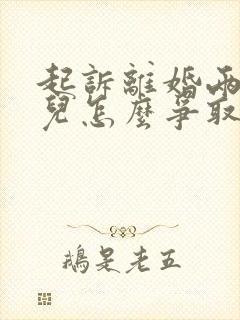 起訴離婚兩
兒怎麼爭取
鵝是老五